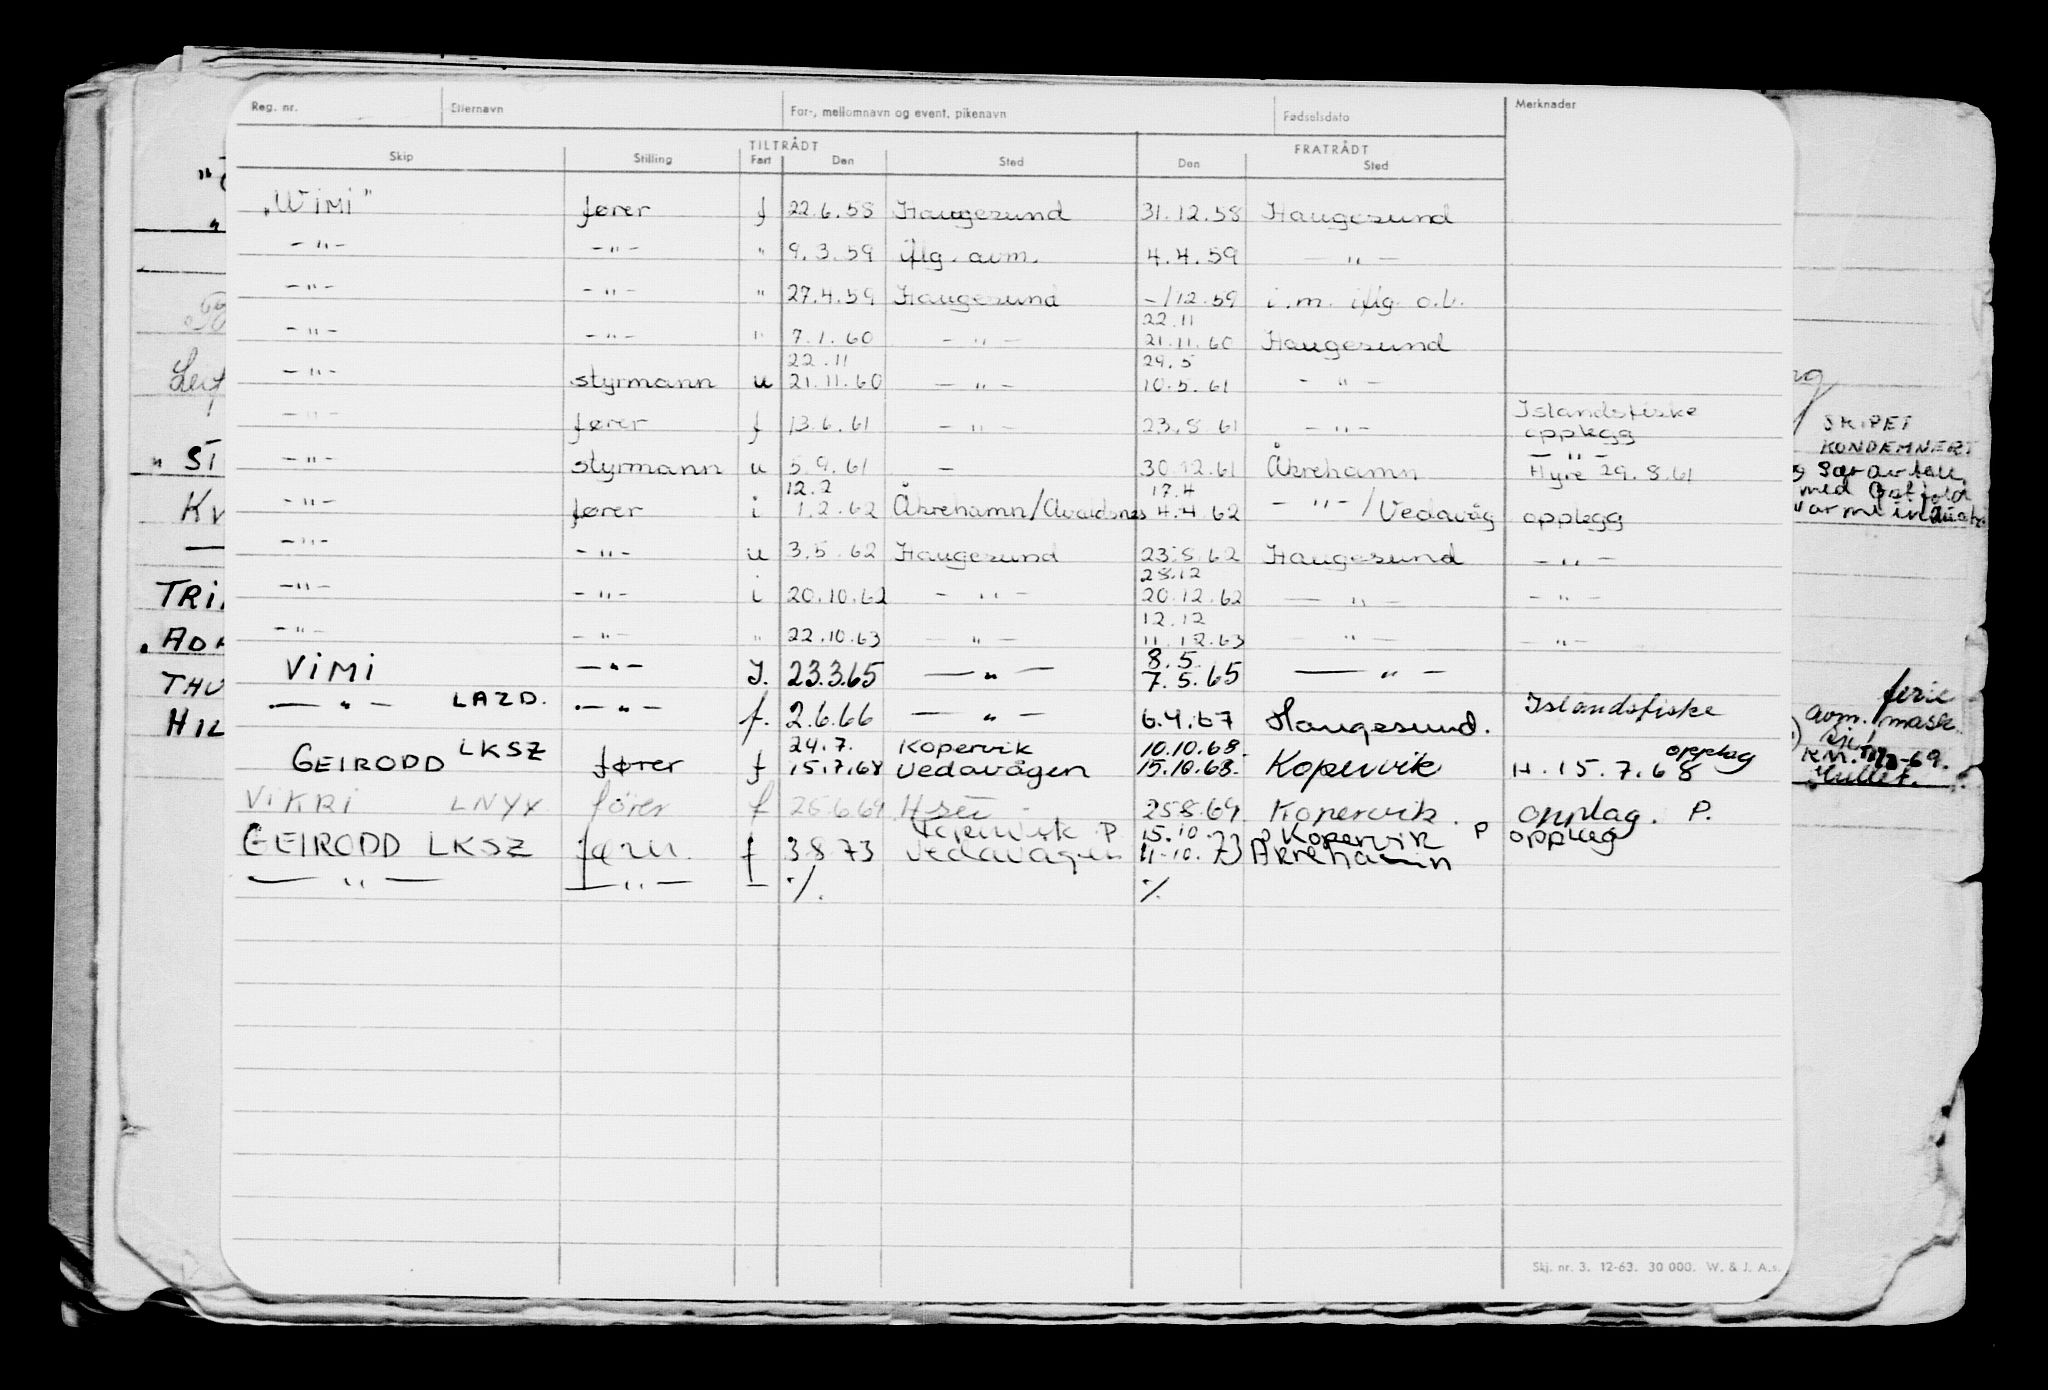 Reg. nr. Etternavn For-, mellomnavn og event. pikenavn Fødselsdato Merknader
TILTRÅDT FRATRÅDT
Skip Stilling Fart Den Sted Den Sted
„WIMI" fører f 22.6.58 Haugesund 31.12.58 Haugesund
-"- -"- " 9.3.59 iflg. avm. 4.4.59 -"-
-"- -"- " 27.4.59 Haugesund -/12.59 i.m. iflg. o.b.
22.11
-"- -"- " 7.1.60 -"- 21.11.60 Haugesund
22.11 29.5
-"- styrmann u 21.11.60 -"- 10.5.61 -"-
-"- fører f 13.6.61 -"- 23.8.61 -"- Islandsfiske
opplegg
-"- styrmann u 5.9.61 - 30.12.61 Åkrehamn -"-
Hyre 29.8.61
12.2 17.4
-"- fører i 1.2.62 Åkrehamn/Avaldsnes 4.4.62 -"-/Vedavåg opplegg
-"- -"- u 3.5.62 Haugesund 23.8.62 Haugesund -"-
28.12
-"- -"- i 20.10.62 -"- 20.12.62 -"- -"-
12.12
-"- -"- " 22.10.63 -"- 11.12.63 -"- -"-
8.5.
VIMI -"- I. 23.3.65 -"- 7.5.65 -"-
-"- LAZD. -"- f. 2.6.66 -"- 6.4.67 Haugesund. Islandsfiske
24.7. Kopervik 10.10.68. opplag
GEIRODD LKSZ fører f 15.7.68 Vedavågen 15.10.68. Kopervik H. 15.7.68
VIKRI LNYX fører f 25.6.69 25.8.69 Kopervik. opplag. P.
Kopervik P 15.10.73 Kopervik P opplegg
GEIRODD LKSZ fører f 3.8.73 Vedavågen 11.10.73 Åkrehamn
-"- -"- - ./. ./.
Skj. nr. 3. 12-63. 30 000. W. & J. A.s.
Leif
ST
KV
TRI
ADA
THU
HIL
SKIPET
KONDEMNERT
med Østfold
ferie
avm. mask